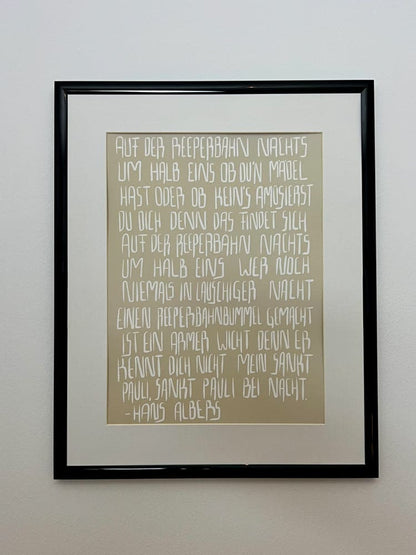 AUF DER REEPERBAHN NACHTS
UM HALB EINS OB DU'N MÄDEL
HAST ODER OB KEIN'S AMÜSIERST
DU DICH DENN DAS FINDET SICH
AUF DER REEPERBAHN NACHTS
UM HALB EINS WER NOCH
NIEMALS IN LAUSCHIGER NACHT
EINEN REEPERBAHNBUMMEL GEMACHT
IST EIN ARMER WICHT DENN ER
KENNT DICH NICHT MEIN SANKT
PAULI, SANKT PAULI BEI NACHT.
-HANS ALBERS